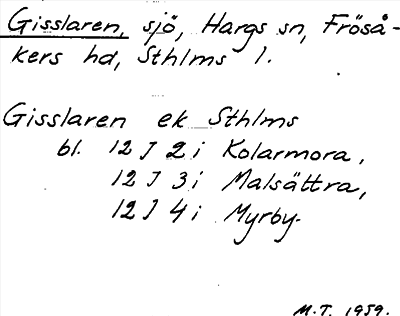 Gisslaren, sjö, Hargs sn, Fröså-
kers hd, Sthlms l.
Gisslaren ek Sthlms
bl. 12 J 2 i Kolarmora,
12 J 3 i Malsättra,
12 J 4 i Myrby.
M.T. 1959.